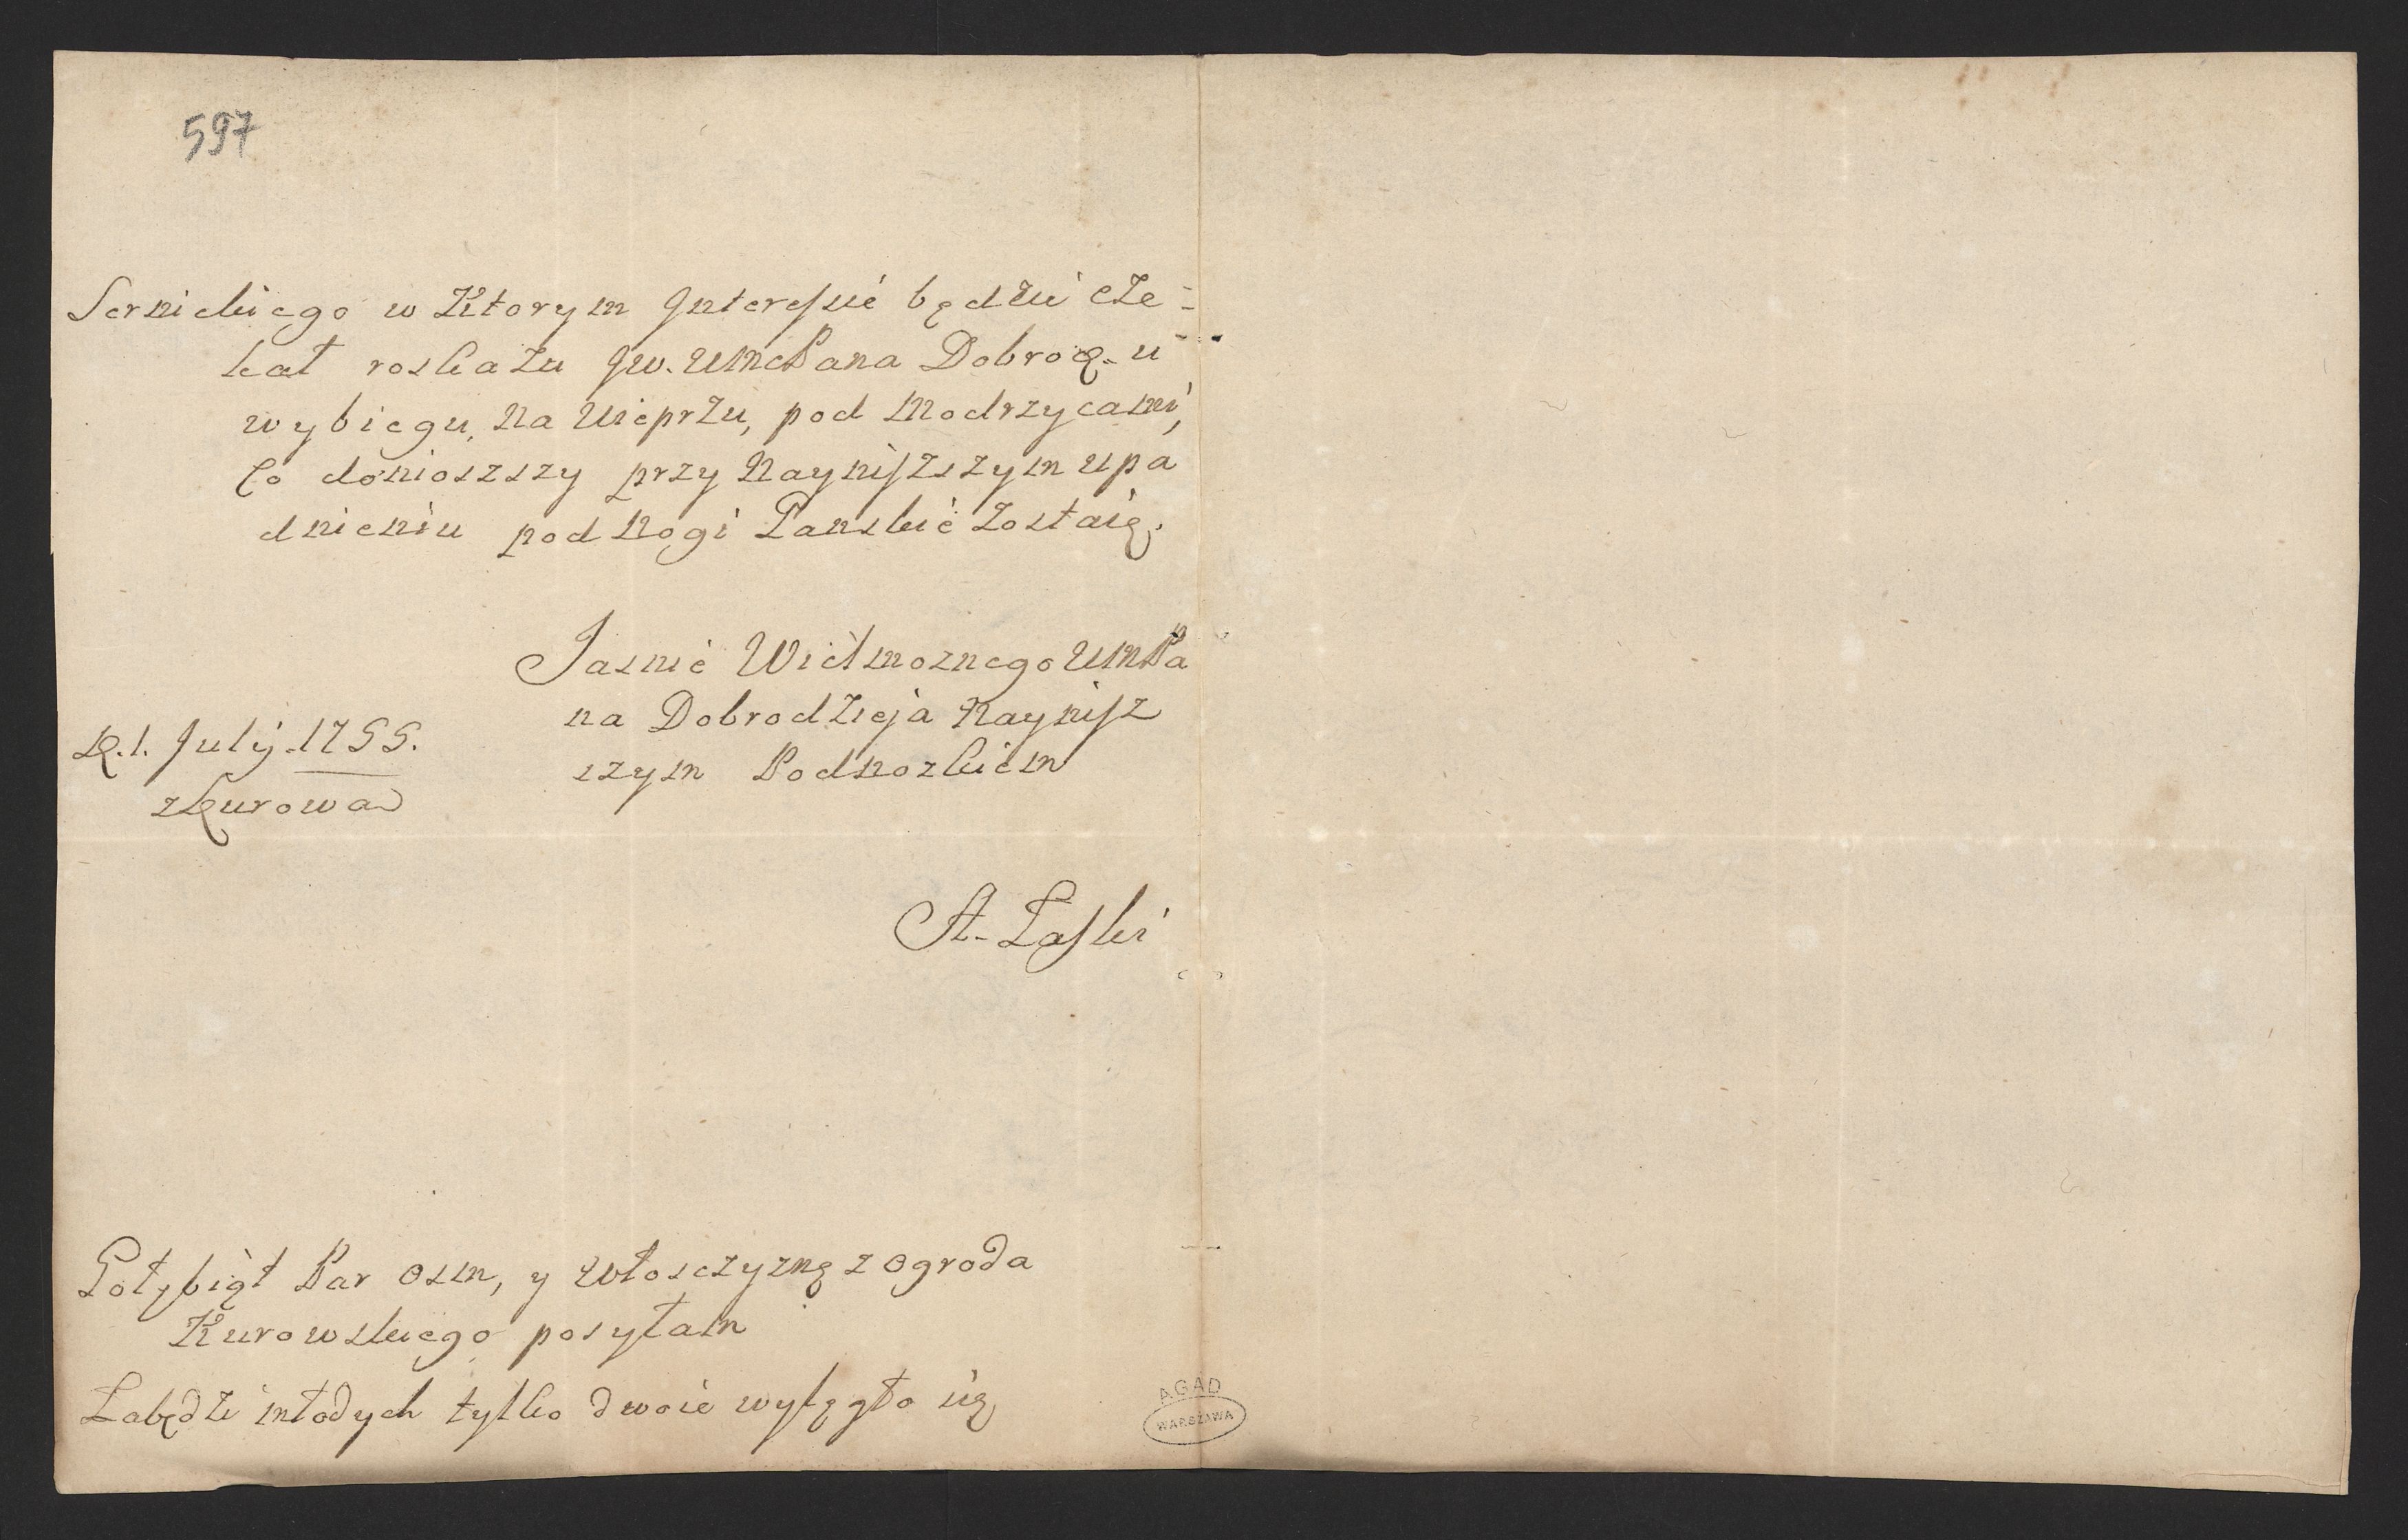 597
Sernickiego w Ktorym Interessie będzie cze-
kał roskazu Jw. WMcPana Dobrodz. u
wybiegu, na Wieprzu, pod Modrzycami,
Co doniozszy przy Nayniszszym upa
dnieniu pod Nogi Panskie Zostaię.
Jasnie Wielmoznego WMPa
na Dobrodzieja Naynisz
szym Podnozkiem
D. 1. July. 1755.
z Kurowa
A. Laski
Gołębiąt Par osm, y Włosczyznę z Ogroda
Kurowskiego posyłam
Łabędzi młodych tylko dwoie wylęgło się
AGAD
WARSZAWA